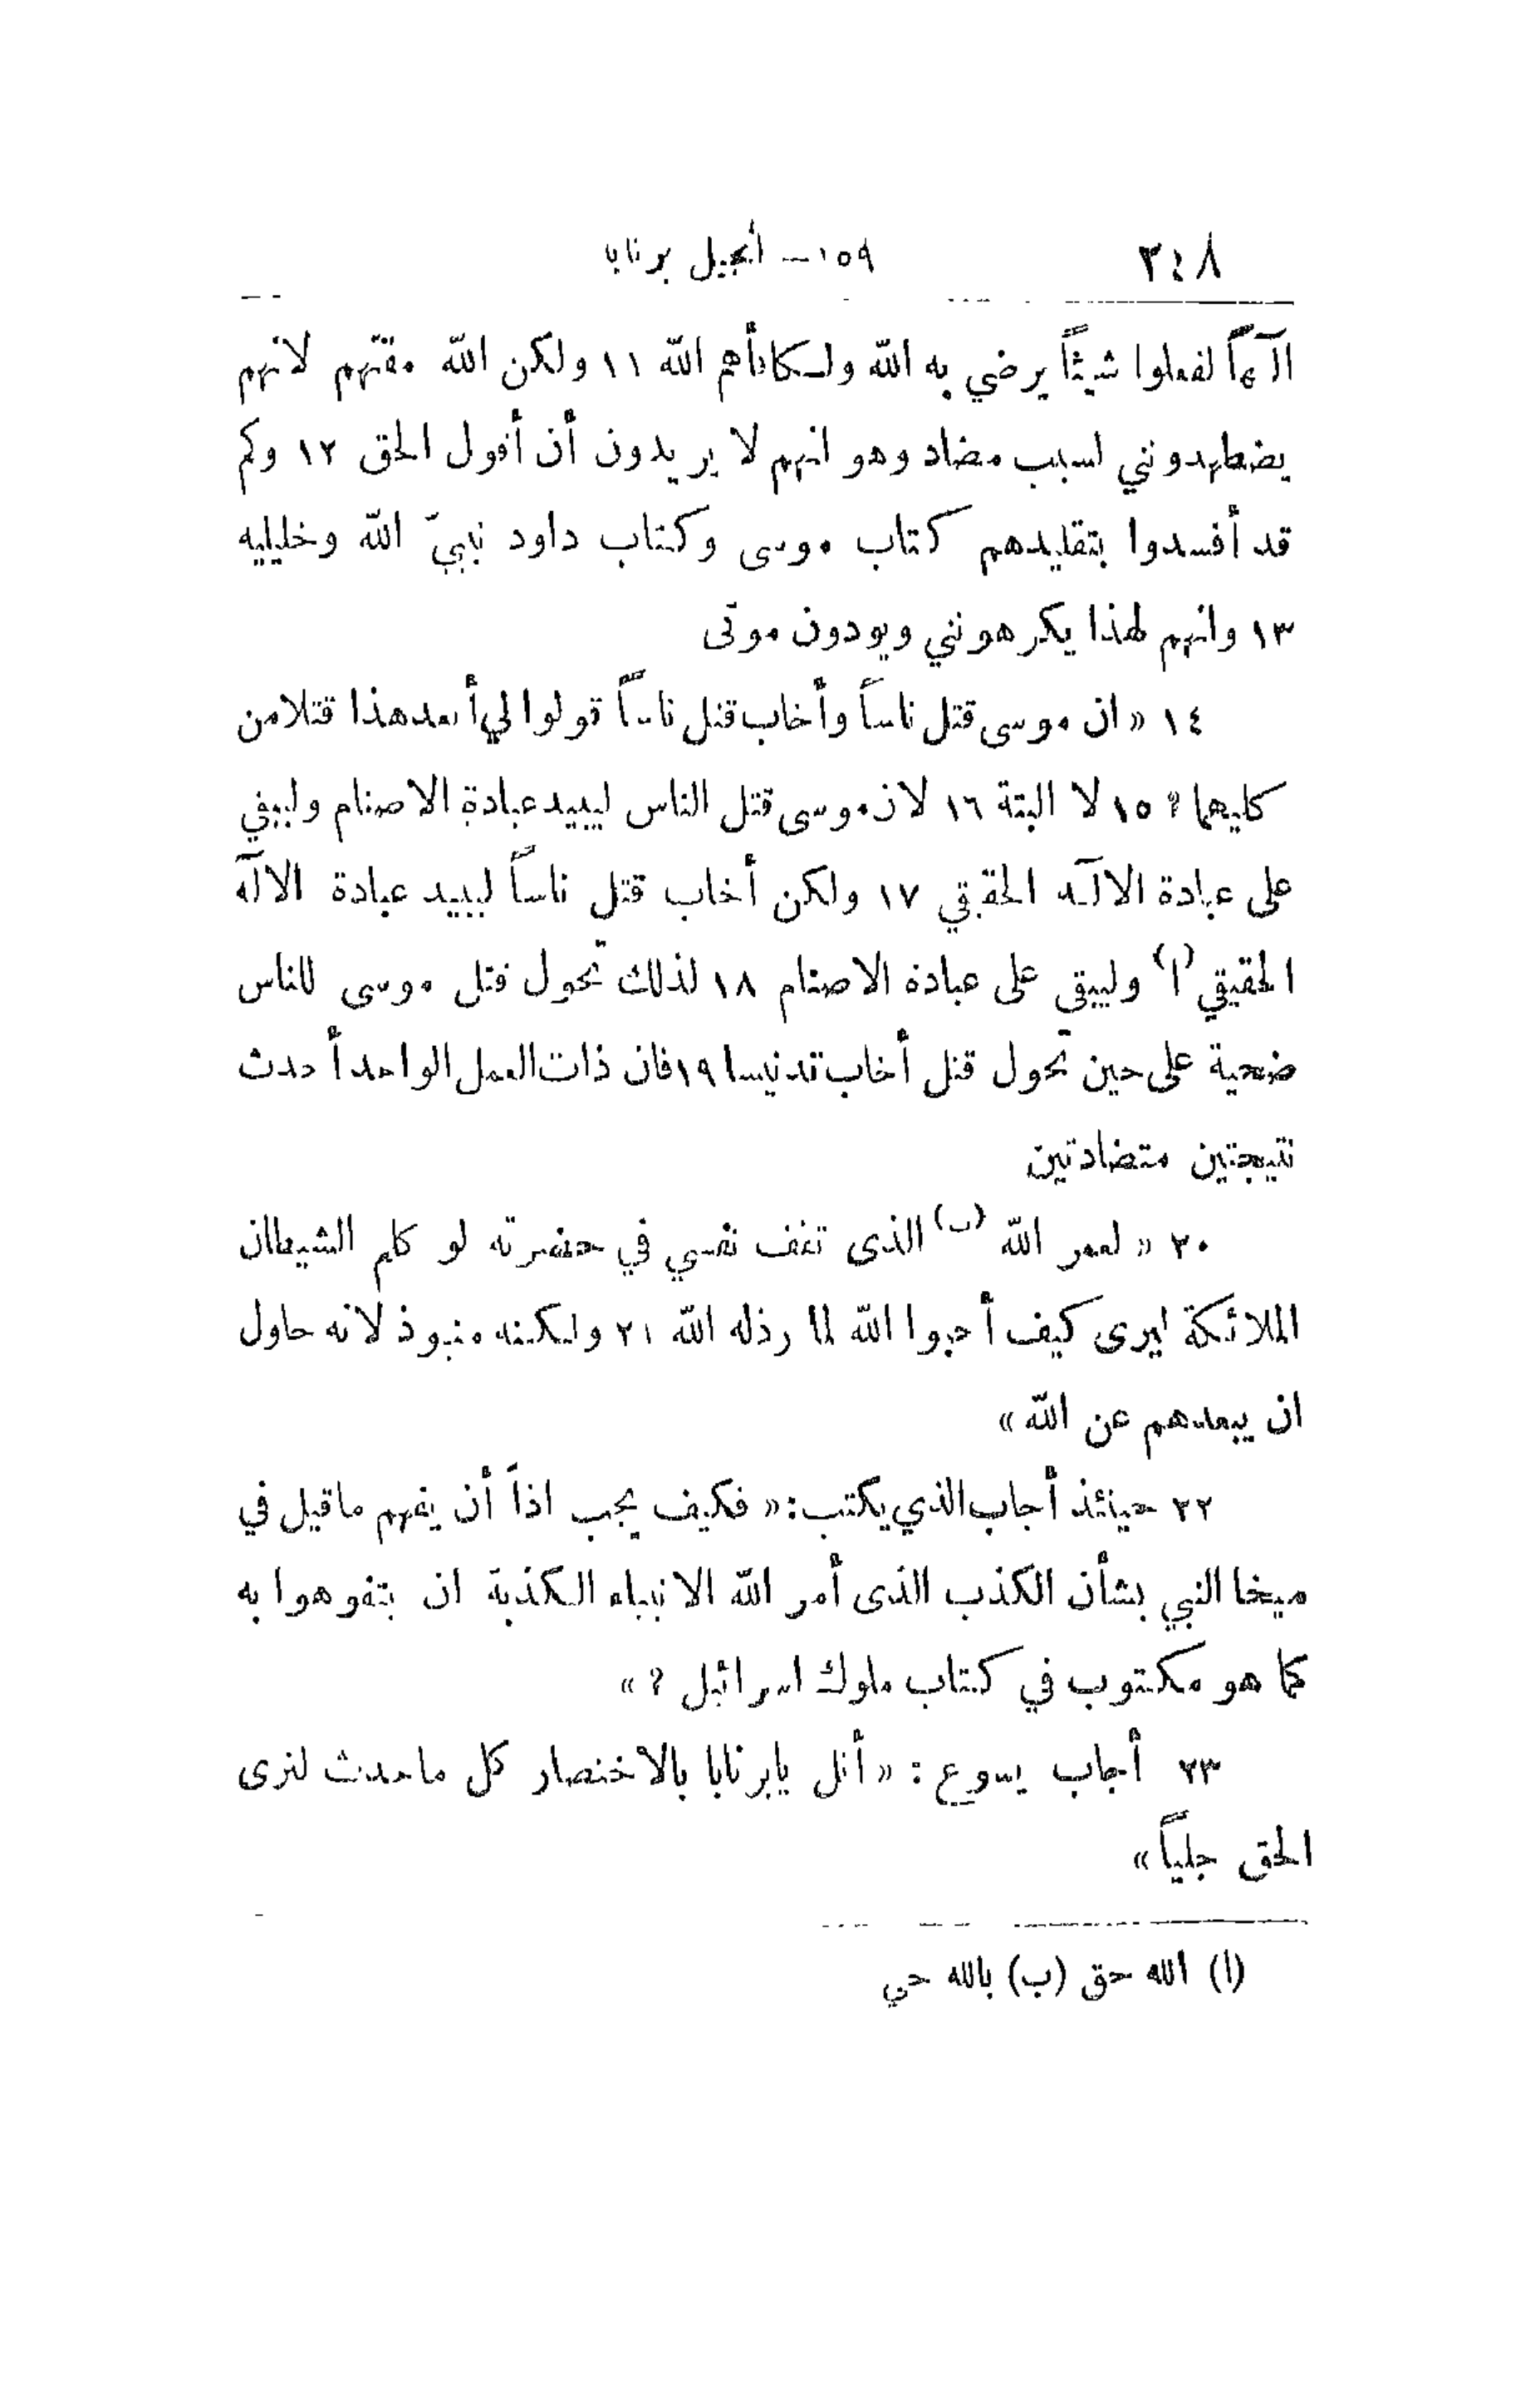 ٢٤٨ ١٥٩ — أنجيل برنابا
الآهاً لفعلوا شيئاً يرضي به الله ولكافأهم الله ١١ ولكن الله مقتهم لانهم
يضطهدونني لسبب مضاد وهو انهم لا يريدون أن أقول الحق ١٢ وكم
قد أفسدوا بتقليدهم كتاب موسى وكتاب داود نبيّ الله وخليليه
١٣ وانهم لهذا يكرهونني ويودون موتى
١٤ « ان موسى قتل ناساً وأخاب قتل ناساً قولوا لي أ يعد هذا قتلا من
كليهما ? ١٥ لا البتة ١٦ لان موسى قتل الناس ليبيد عبادة الاصنام وليبقي
على عبادة الالآه الحقيقي ١٧ ولكن أخاب قتل ناساً ليبيد عبادة الالآه
الحقيقي (ا) وليبقى على عبادة الاصنام ١٨ لذلك تحول قتل موسى للناس
ضحية على حين تحول قتل أخاب تدنيسا ١٩ فان ذات العمل الواحد أحدث
نتيجتين متضادتين
٢٠ « لعمر الله (ب) الذى تقف نفسي في حضرته لو كلم الشيطان
الملائكة ليرى كيف أحبوا الله لما رذله الله ٢١ ولكنه منبوذ لانه حاول
ان يبعدهم عن الله »
٢٢ حينئذ أجاب الذي يكتب : « فكيف يجب اذاً أن يفهم ما قيل في
ميخا النبي بشأن الكذب الذى أمر الله الانبياء الكذبة ان يتفوهوا به
كما هو مكتوب في كتاب ملوك اسرائيل ? »
٢٣ أجاب يسوع : « أتل يا برنابا بالاختصار كل ما حدث لنرى
الحق جلياً »
(ا) الله حق (ب) بالله حي